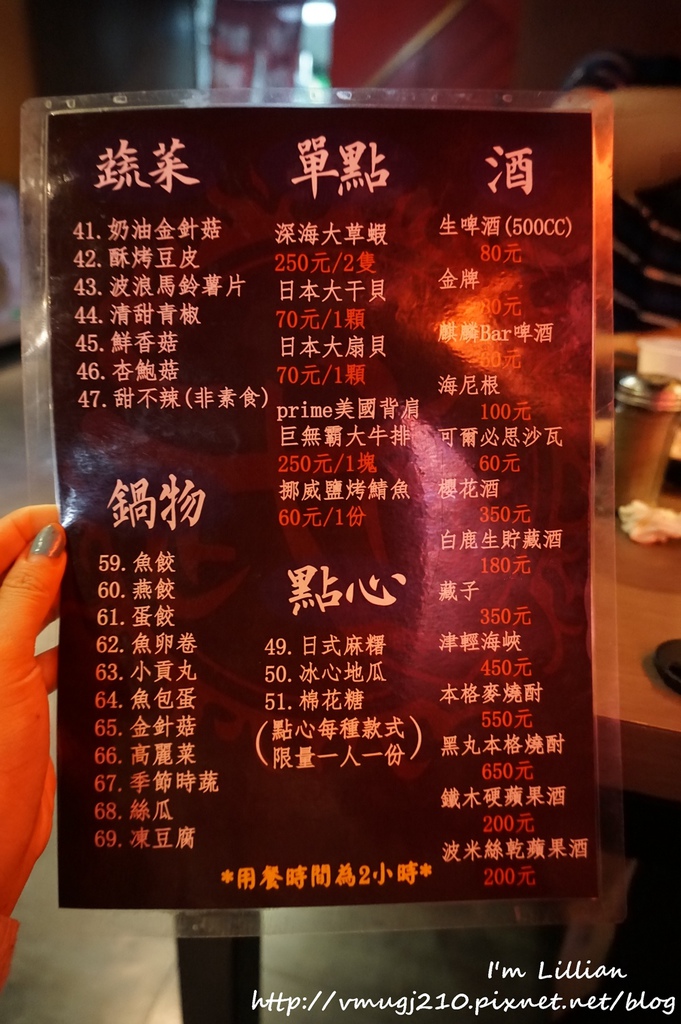 蔬菜
41. 奶油金針菇
42. 酥烤豆皮
43. 波浪馬鈴薯片
44. 清甜青椒
45. 鮮香菇
46. 杏鮑菇
47. 甜不辣(非素食)
鍋物
59. 魚餃
60. 燕餃
61. 蛋餃
62. 魚卵卷
63. 小貢丸
64. 魚包蛋
65. 金針菇
66. 高麗菜
67. 季節時蔬
68. 絲瓜
69. 凍豆腐
單點
深海大草蝦
250元/2隻
日本大干貝
70元/1顆
日本大扇貝
70元/1顆
prime美國背肩
巨無霸大牛排
250元/1塊
挪威鹽烤鯖魚
60元/1份
點心
49. 日式麻糬
50. 冰心地瓜
51. 棉花糖
(點心每種款式
限量一人一份)
酒
生啤酒(500CC)
80元
金牌
80元
麒麟Bar啤酒
60元
海尼根
100元
可爾必思沙瓦
60元
櫻花酒
350元
白鹿生貯藏酒
180元
藏子
350元
津輕海峽
450元
本格麥燒酎
550元
黑丸本格燒酎
650元
鐵木硬蘋果酒
200元
波米絲乾蘋果酒
200元
*用餐時間為2小時*
I'm Lillian
http://vmugj210.pixnet.net/blog